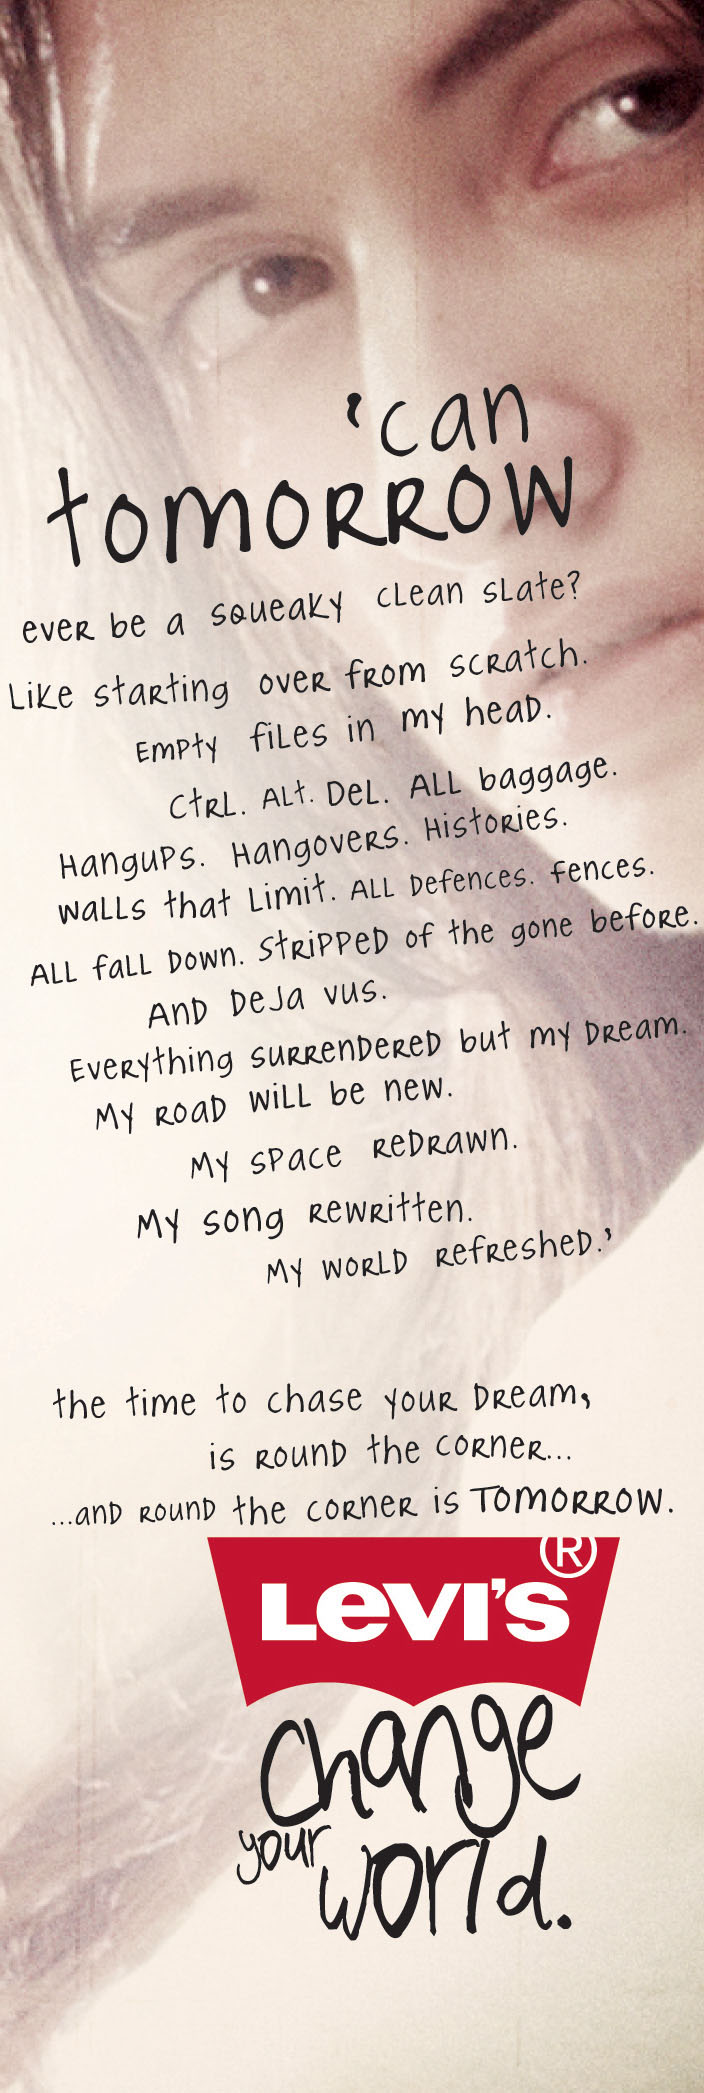 'can
tomorrow
ever be a squeaky clean slate?
Like starting over from scratch.
Empty files in my head.
Ctrl. Alt. Del. All baggage.
Hangups. Hangovers. Histories.
Walls that limit. All defences. Fences.
All fall down. Stripped of the gone before.
And deja vus.
Everything surrendered but my dream.
My road will be new.
My space redrawn.
My song rewritten.
My world refreshed.'
the time to chase your dream,
is round the corner...
...and round the corner is TOMORROW.
LEVI'S ®
change
your
world.